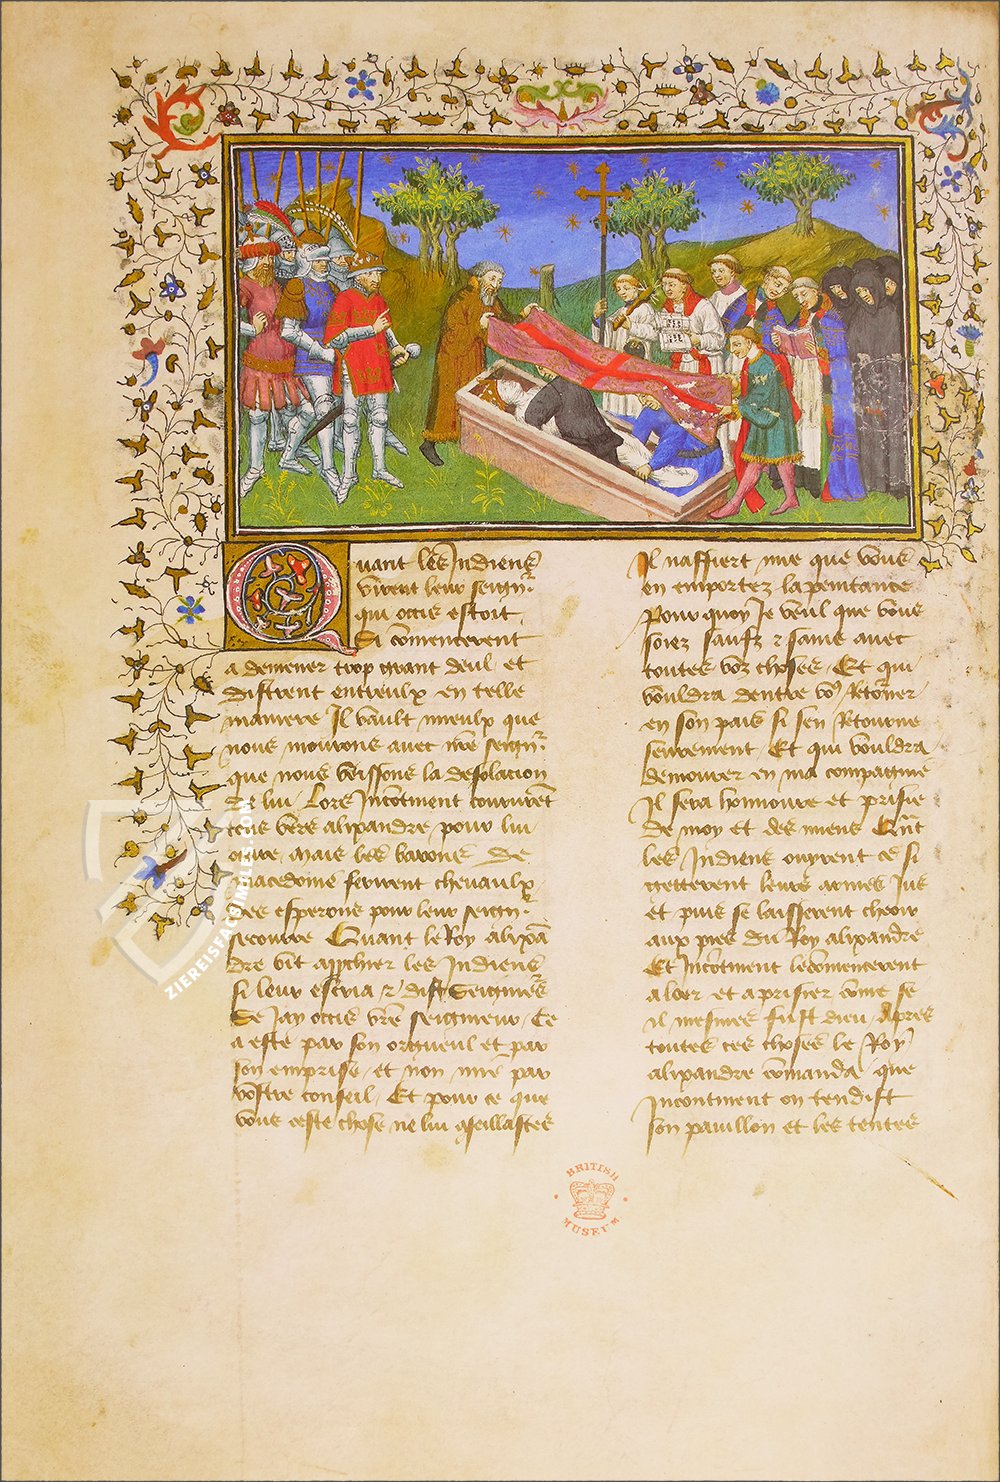 Quant les Indiens
virent leur seignr
qui occis estoit
Si comencerent
a demener trop grant deul et
distrent entreulx en telle
maniere Il vault mieulx que
nous mourons avec nre seignr
que nous veissons la desolacion
de lui. Lors Incotment coururet
tous vers alixandre pour lui
occire. mais les barons de
macedoine ferirent chevaulx
des esperons pour leur seignr
secourre Quant le Roy alixa
dre vit approchier les Indiens
si leur escria & dist Seigneurs
se Jay occis vre seigneur. Ce
a este par son orgueil et par
son emprise. et non mie par
vostre conseil. Et pour ce que
vous ceste chose ne lui aseillastes
Il naffiert mie que vous
en emportez la penitance
Pour quoy Je veul que vous
soiez saufz & sains avec
toutes voz choses. Et qui
vouldra dentre vo9 Retorner
en son pais si sen Retourne
seurement. Et qui vouldra
demourer en ma compagnie
Il sera honnoure et prisie
de moy et des miens Qnt
les Indiens ouyrent ce si
getterent leurs armes Jus
et puis se laisserent cheoir
aux pies du Roy alixandre
Et Incotment le comencerent
a loer et a prisier come se
il mesmes fust dieu. Apres
toutes ces choses le Roy
alixandre comanda. que
Incontment on tendist
son pavillon et les tentes
BRITISH
MUSEUM
ZIEREISFACSIMILES.COM